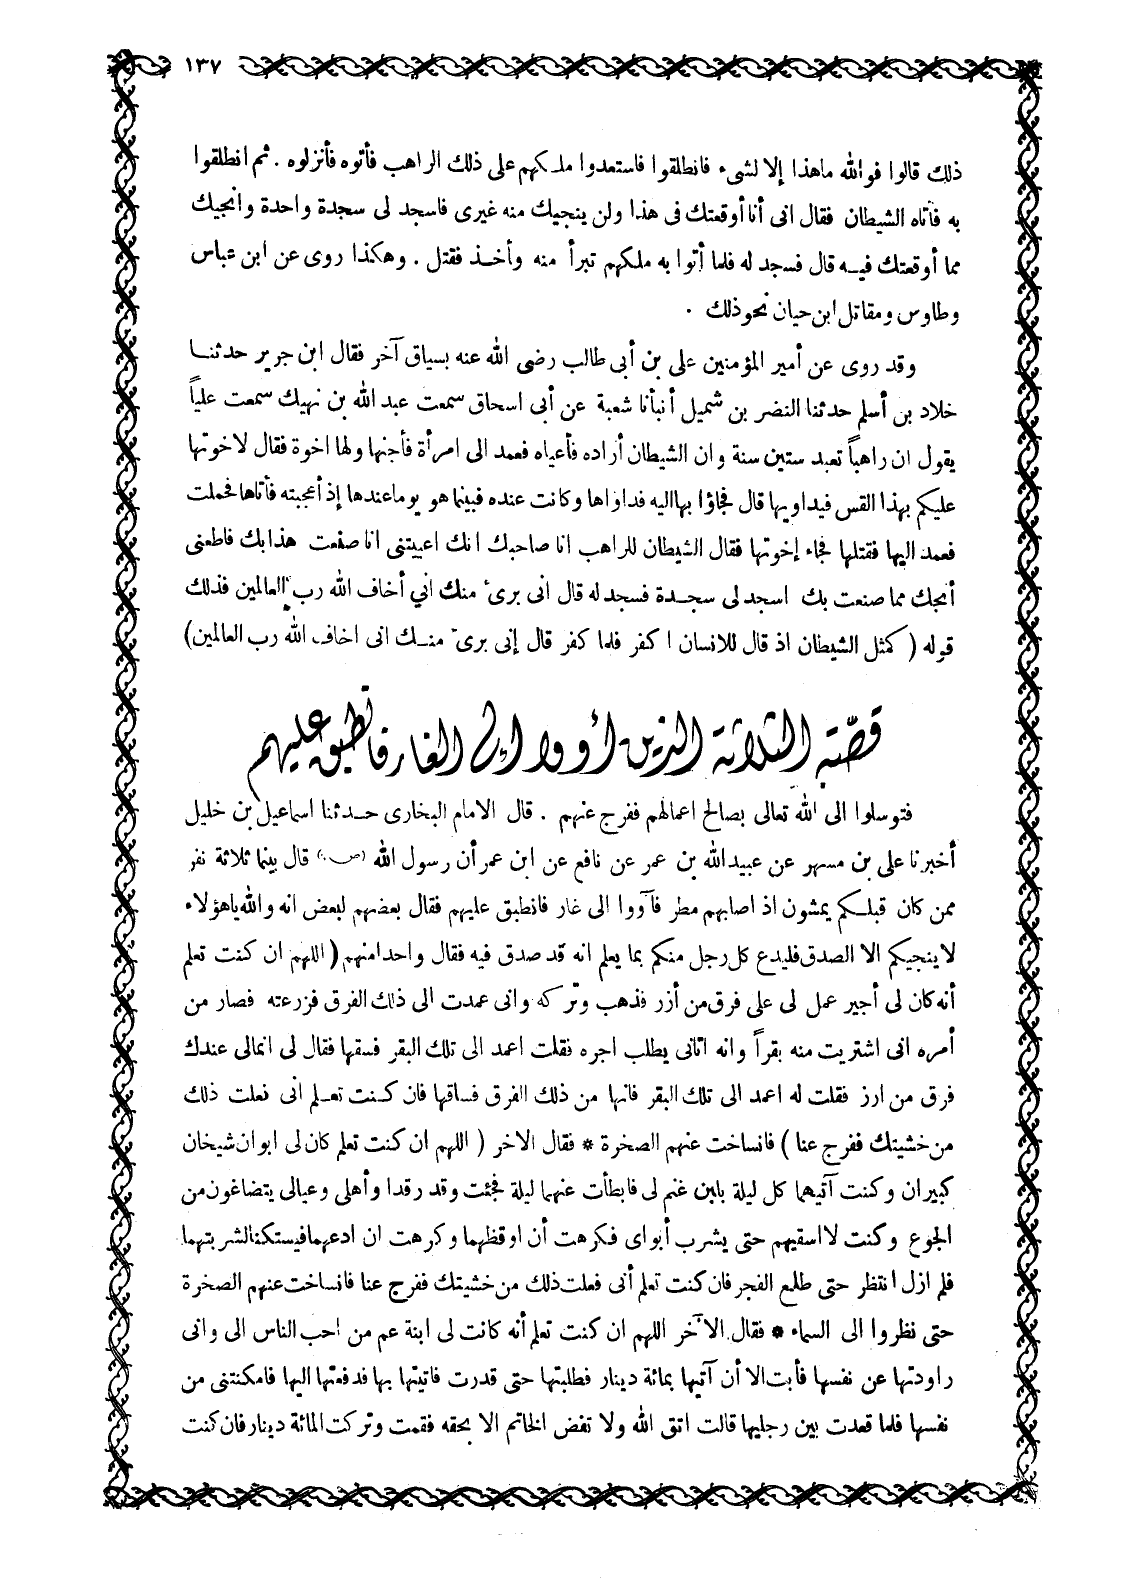 ١٣٧
ذلك قالوا فوالله ماهذا إلا لشىء فانطلقوا فاستعدوا ملكهم على ذلك الراهب فأتوه فأنزلوه . ثم انطلقوا
به فأتاه الشيطان فقال انى أنا أوقعتك فى هذا ولن ينجيك منه غيرى فاسجد لى سجدة واحدة وانجيك
مما أوقعتك فيه قال فسجد له فلما أتوا به ملكهم تبرأ منه وأخذ فقتل . وهكذا روى عن ابن عباس
وطاوس ومقاتل ابن حيان نحو ذلك .
وقد روى عن أمير المؤمنين على بن أبى طالب رضى الله عنه بسياق آخر فقال ابن جرير حدثنا
خلاد بن أسلم حدثنا النضر بن شميل أنبأنا شعبة عن أبى اسحاق سمعت عبد الله بن نهيك سمعت علياً
يقول ان راهباً تعبد ستين سنة وان الشيطان أراده فأعياه فعمد الى امرأة فأجنها ولها اخوة فقال لاخوتها
عليكم بهذا القس فيداويها قال فجاؤا بها اليه فداواها وكانت عنده فبينما هو يوما عندها إذ أعجبته فأتاها فحملت
فعمد اليها فقتلها فجاء إخوتها فقال الشيطان للراهب انا صاحبك انك اعييتنى انا صنعت هذا بك فاطعنى
أنجك مما صنعت بك اسجد لى سجدة فسجد له قال انى برىء منك اني أخاف الله رب العالمين فذلك
قوله ( كمثل الشيطان اذ قال للانسان اكفر فلما كفر قال إنى برىء منك انى اخاف الله رب العالمين)
قصّة الثلاثة الذين أووا إلى الغار فانطبق عليهم
فتوسلوا الى الله تعالى بصالح اعمالهم ففرج عنهم . قال الامام البخارى حدثنا اسماعيل بن خليل
أخبرنا على بن مسهر عن عبيدالله بن عمر عن نافع عن ابن عمر أن رسول الله (ص) قال بينما ثلاثة نفر
ممن كان قبلكم يمشون اذ اصابهم مطر فآووا الى غار فانطبق عليهم فقال بعضهم لبعض انه والله ياهؤلاء
لا ينجيكم الا الصدق فليدع كل رجل منكم بما يعلم انه قد صدق فيه فقال واحد منهم ( اللهم ان كنت تعلم
أنه كان لى أجير عمل لى على فرق من أزر فذهب وتركه وانى عمدت الى ذلك الفرق فزرعته فصار من
أمره انى اشتريت منه بقراً وانه اتانى يطلب اجره فقلت اعمد الى تلك البقر فسقها فقال لى انما لى عندك
فرق من ارز فقلت له اعمد الى تلك البقر فانها من ذلك الفرق فساقها فان كنت تعلم انى فعلت ذلك
من خشيتك ففرج عنا ) فانساخت عنهم الصخرة * فقال الاخر ( اللهم ان كنت تعلم كان لى ابوان شيخان
كبيران وكنت آتيهما كل ليلة بابن غنم لى فابطأت عنهما ليلة فجئت وقد رقدا وأهلى وعيالى يتضاغون من
الجوع وكنت لا اسقيهم حتى يشرب أبواى فكرهت أن اوقظهما وكرهت ان ادعهما فيستكنا لشربتهما
فلم ازل انتظر حتى طلع الفجر فان كنت تعلم أنى فعلت ذلك من خشيتك ففرج عنا فانساخت عنهم الصخرة
حتى نظروا الى السماء * فقال الآخر اللهم ان كنت تعلم أنه كانت لى ابنة عم من احب الناس الى وانى
راودتها عن نفسها فأبت الا أن آتيها بمائة دينار فطلبتها حتى قدرت فاتيتها بها فدفعتها اليها فامكنتنى من
نفسها فلما قعدت بين رجليها قالت اتق الله ولا تفض الخاتم الا بحقه فقمت وتركت المائة دينار فان كنت